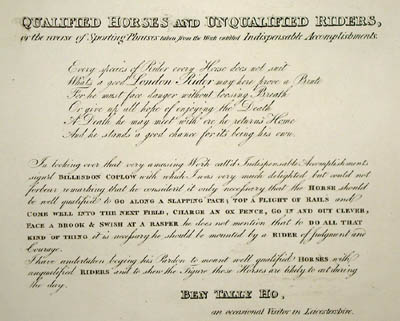 QUALIFIED HORSES AND UNQUALIFIED RIDERS,
or the reverse of Sporting Phrases taken from the Work entitled Indispensable Accomplishments.
Every species of Rider every Horse does not suit
What's a good London Rider may here prove a Brute
For he must face danger without loosing Breath
Or give up all hope of enjoying the Death
A Death he may meet with ere he returns Home
And he stands a good chance for its being his own.
In looking over that very amusing Work call'd Indispensable Accomplishments
sign'd BILLESDON COPLOW with which I was very much delighted but could not
forbear remarking that he considered it only necessary that the HORSE should
be well qualified to GO ALONG A SLAPPING PACE; TOP A FLIGHT OF RAILS and
COME WELL INTO THE NEXT FIELD, CHARGE AN OX FENCE, GO IN AND OUT CLEVER,
FACE A BROOK & SWISH AT A RASPER he does not mention that to DO ALL THAT
KIND OF THING it is necessary he should be mounted by a RIDER of Judgment and
Courage.
I have undertaken beging his Pardon to mount well qualified HORSES with
unqualified RIDERS and to shew the Figure these Horses are likely to cut during
the day.
BEN TALLY HO,
an occasional Visitor in Leicestershire.